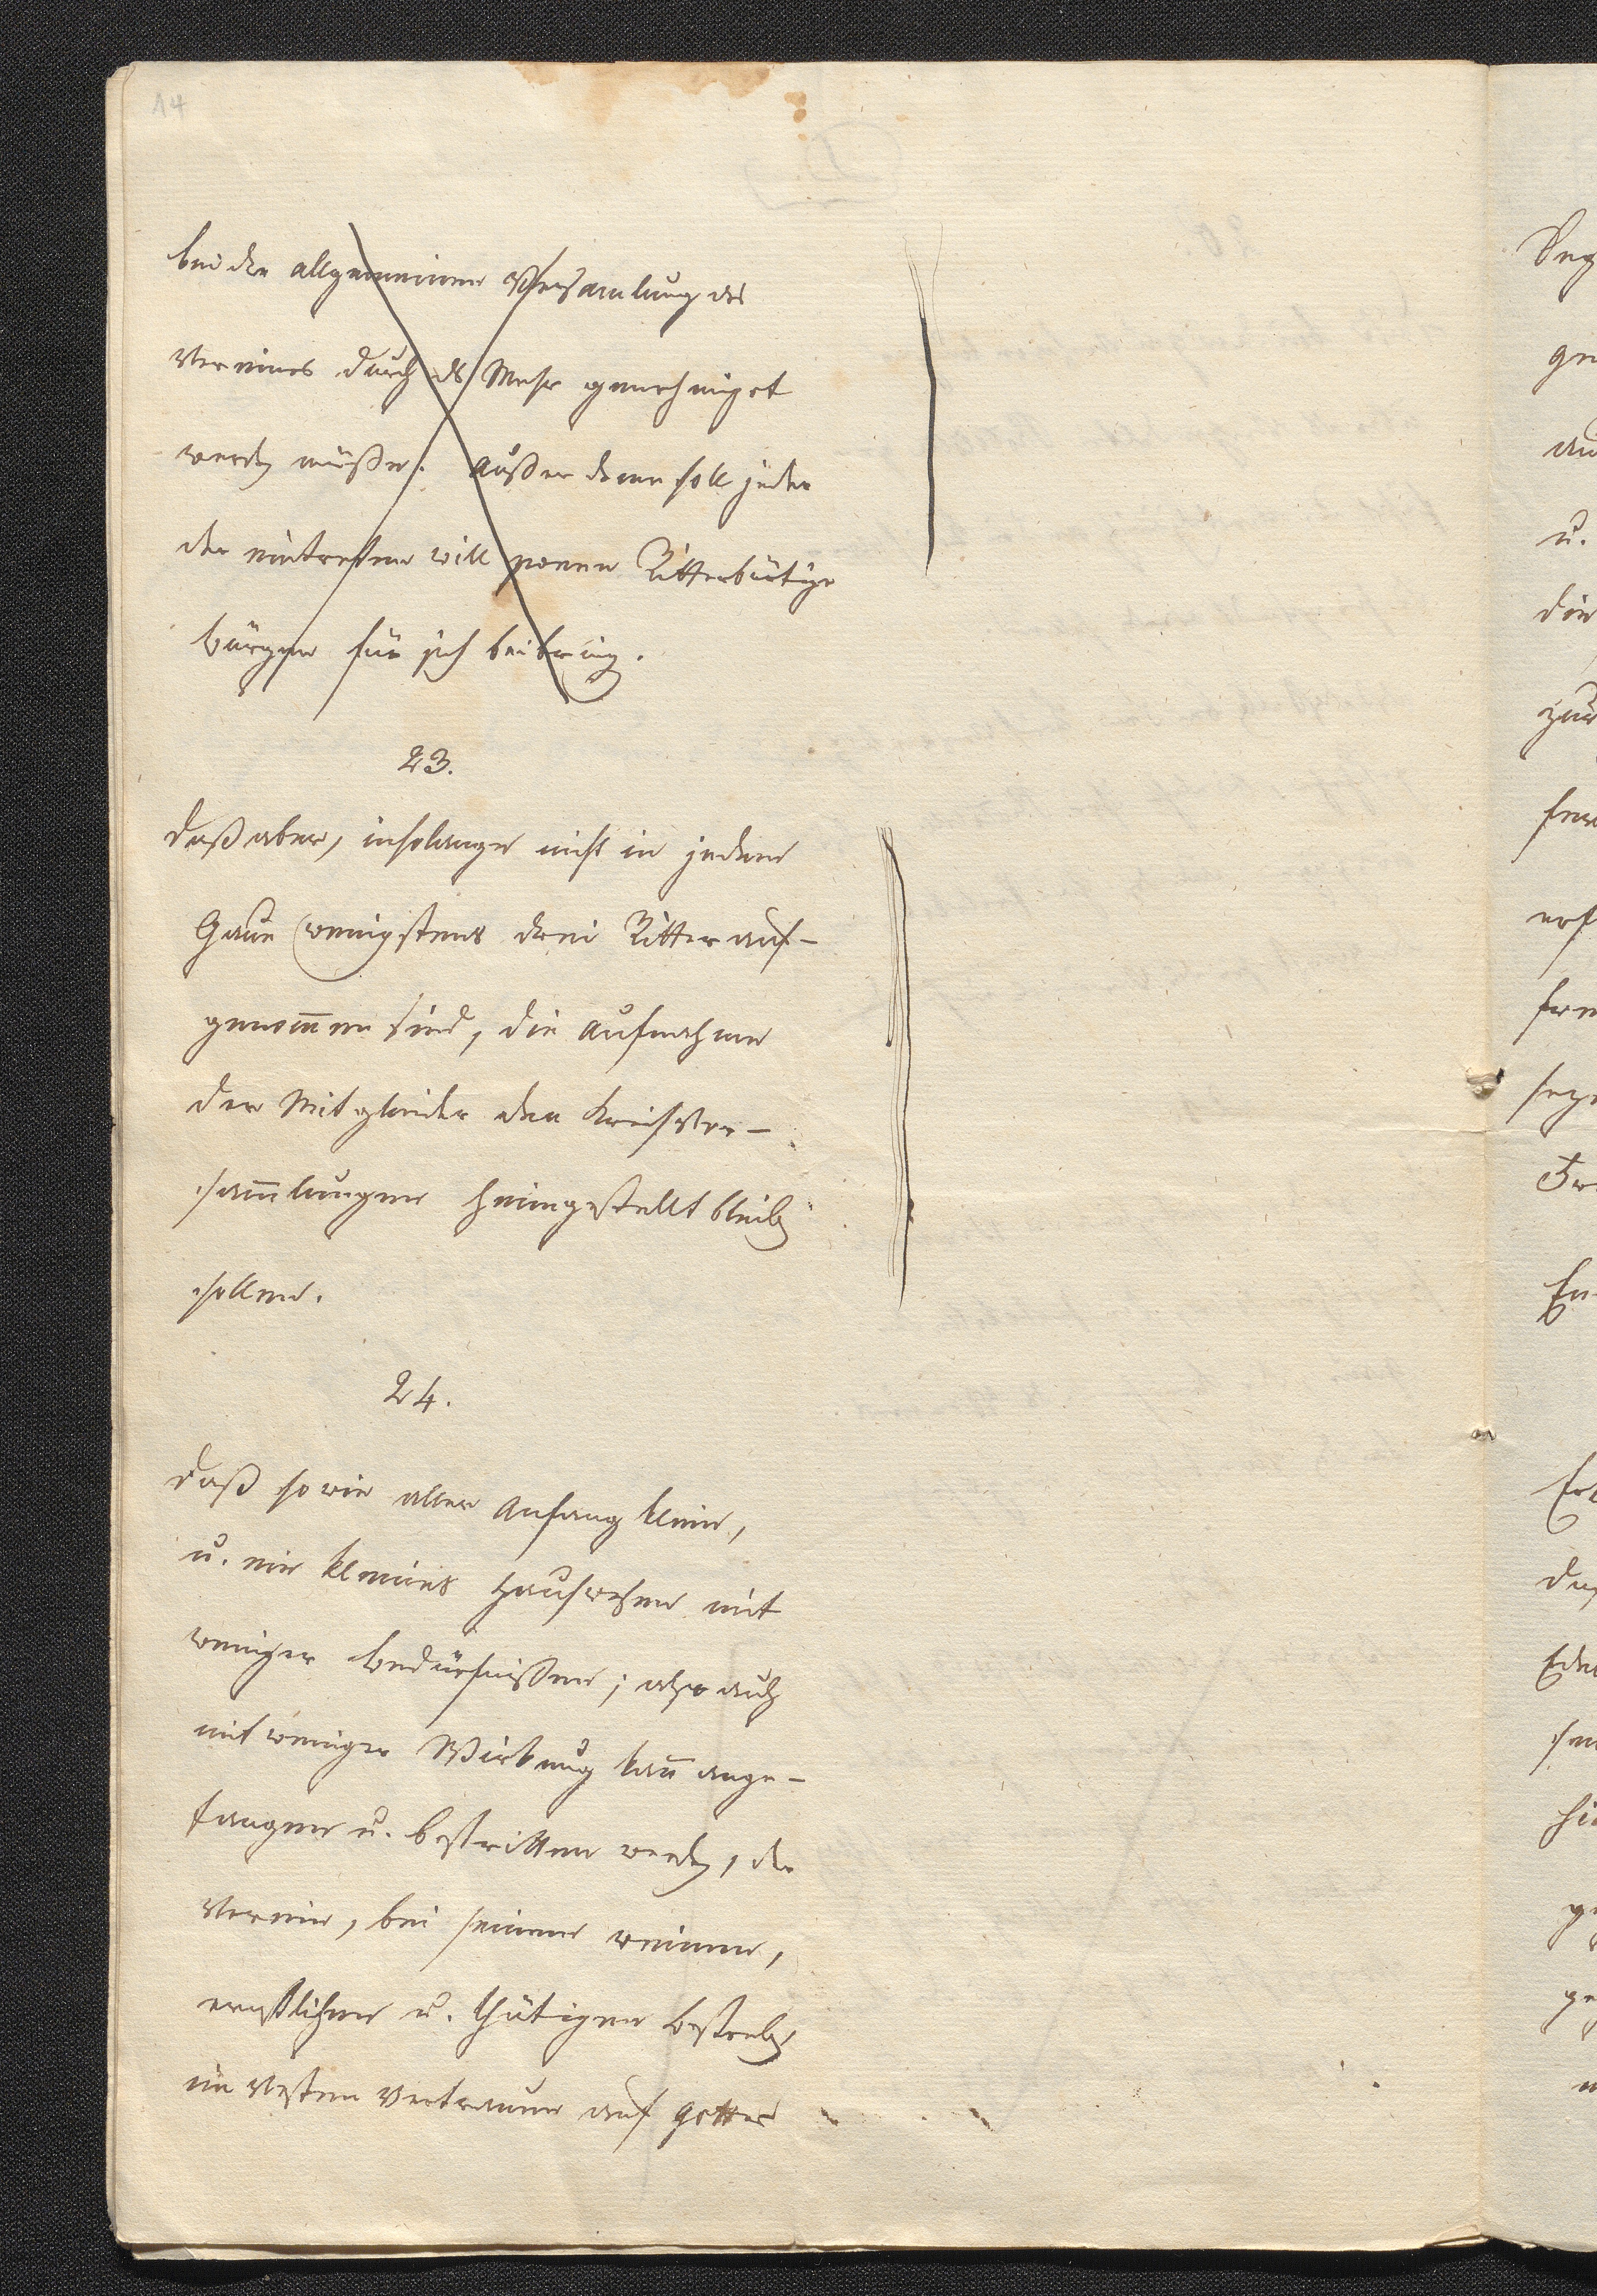 14
bei der allgemeinen Versamlung des
Vereines durch ds Mehr genehmiget
werden müßen. Außer deme soll jeder
der eintretten will zween Ritterbürtige
bürgen für sich beibringen.
23.
daß aber, insolange nicht in jedem
Gaue wenigstens drei Ritter auf-
genom̄en sind, die Aufnahme
der Mitglieder den Kreisver-
sam̄lungen heimgestellt bleiben
sollen.
24.
daß so wie aller Anfang klein,
u. ein kleines Hauswesen mit
weniger Bedürfnißen; also auch
mit weniger Wirkung kan̄ ange-
fangen u. bestritten werden, der
Verein, bei seinem reinen,
ernstlichen u. thätigen Bestreben
im Vesten Vertrauen auf Gottes